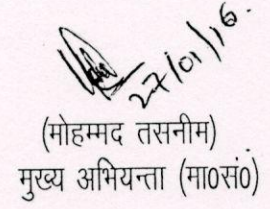 27/01/16.
(मोहम्मद तसनीम)
मुख्य अभियन्ता (मा0सं0)